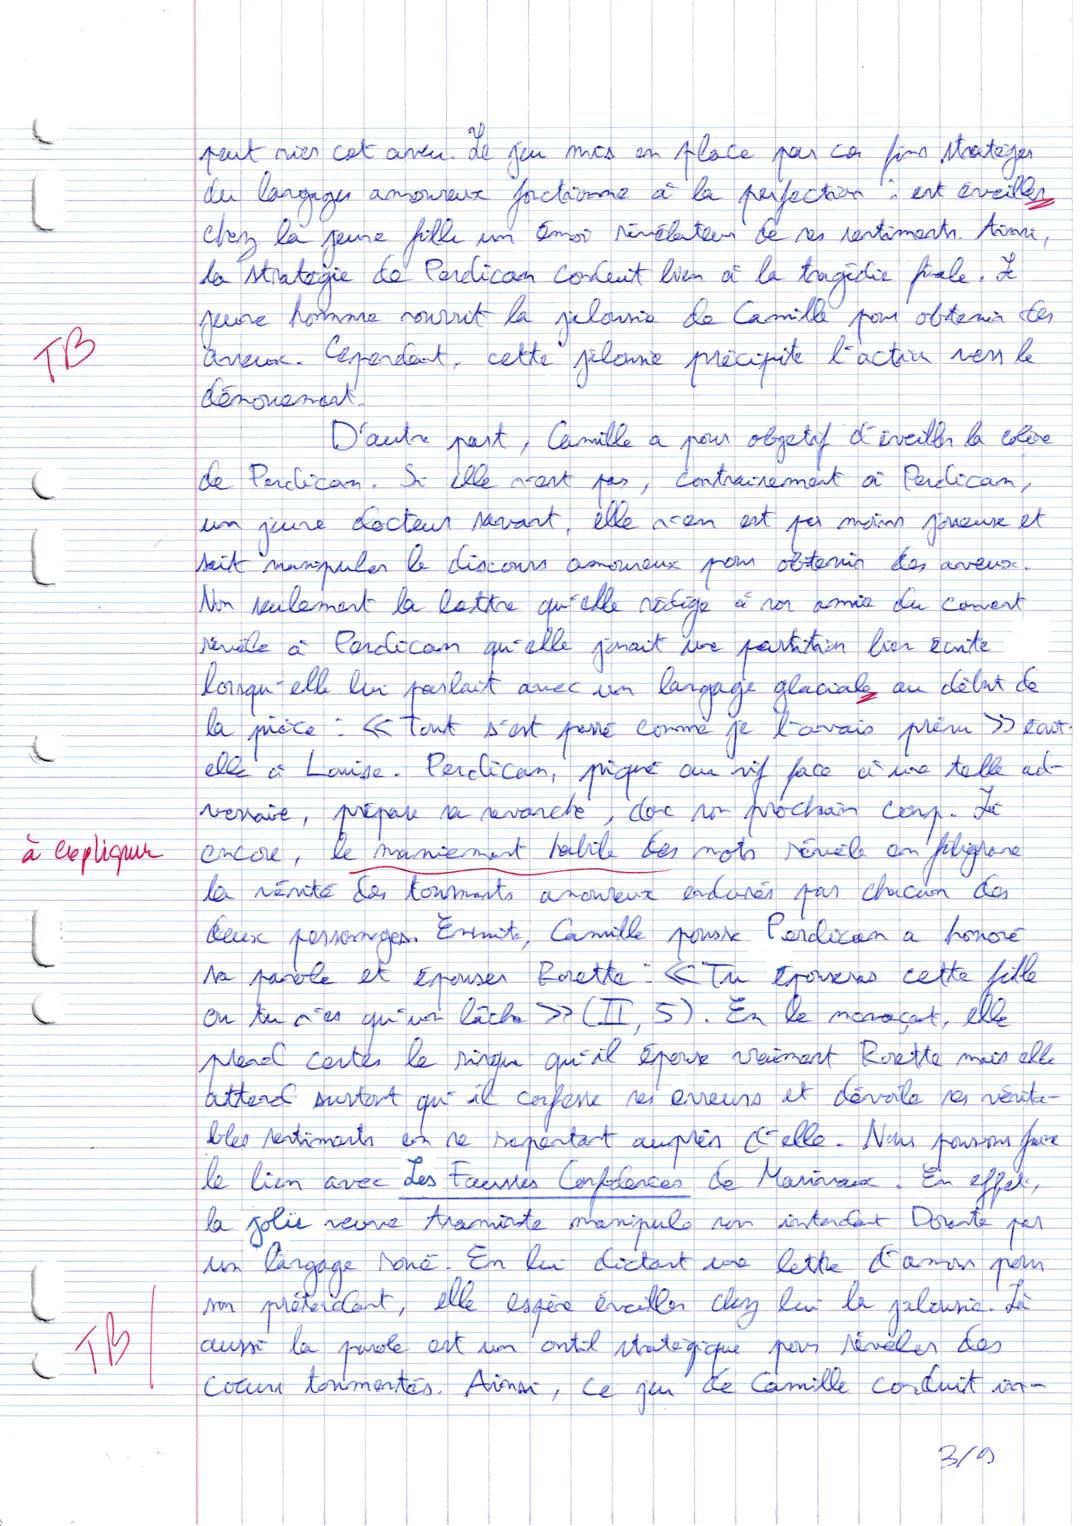 peut nier cet aveu. Le jeu mis en place par ces fins stratèges
du langages amoureux fonctionne à la perfection : est éveiller
chez la jeune fille un émoi révélateur de ses sentiments. Ainsi,
la stratégie de Perdican conduit bien à la tragédie finale. Le
jeune homme nourrit la jalousie de Camille pour obtenir des
TB
aveux. Cependant, cette jalousie précipite l'action vers le
dénouement.
D'autre part, Camille a pour objetif d'éveiller la colère
de Perdican. Si elle n'est pas, contrairement à Perdican,
un jeune docteur savant, elle n'en est pas moins joueuse et
sait manipuler le discours amoureux pour obtenir des aveux.
Non seulement la lettre qu'elle rédige à son amie du couvent
révèle à Perdican qu'elle jouait une partition bien écrite
lorsqu'elle lui parlait avec un langage glaciale au début de
la pièce : << Tout s'est passé comme je l'avais prévu >> écrit-
elle à Louise. Perdican, piqué au vif face à une telle ad-
versaire, prépare sa revanche, donc son prochain coup. Là
à expliquer
encore, le maniement habile des mots révèle en filigrane
la vérité des tourments amoureux endurés par chacun des
deux personnages. Ensuite, Camille pousse Perdican a honoré
sa parole et épouser Rosette : << Tu épouseras cette fille
ou tu n'es qu'un lâche >> (II, 5). En le menaçat, elle
prend certes le risque qu'il épouse vraiment Rosette mais elle
attend surtout qu'il confesse ses erreurs et dévoile ses vérita-
bles sentiments en se repentant auprès d'elle. Nous pouvons faire
le lien avec Les Fausses Confidences de Marivaux. En effet,
la jolie veuve Araminte manipule son intendant Dorante par
un langage roué. En lui dictant une lettre d'amour pour
son prétendant, elle espère éveiller chez lui la jalousie. Là
TB
aussi la parole est un outil stratégique pour révéler des
coeurs tourmentés. Ainsi, ce jeu de Camille conduit in-
3/9